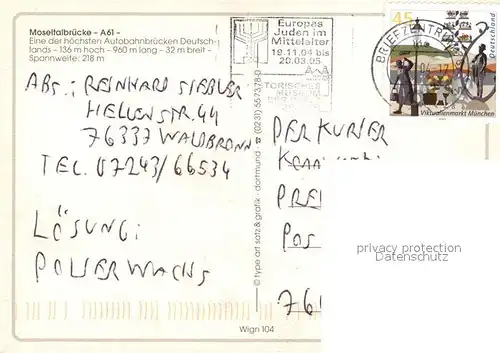 Moseltalbrücke - A61 -
Eine der höchsten Autobahnbrücken Deutsch-
lands - 136 m hoch - 960 m lang - 32 m breit -
Spannweite: 218 m
Europas
Juden im
Mittelalter
19.11.04 bis
20.03.05
TORISCHES
MUSEUM
BRIEFZENTRUM
45
Deutschland
Viktualienmarkt München
ABS.: REINHARD SIEBLER
HELLENSTR. 44
76337 WALDBRONN
TEL. 07243/66534
LÖSUNG:
POLSERWACHS
© type art satz & grafik · dortmund · ☎ (0231) 557378-0
DER KURIER
PREI
POS
76
privacy protection
Datenschutz
Wign 104